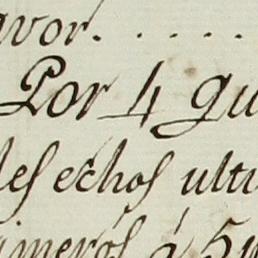 avor. . . . . .
Por 4 qu
les echos ulti
imeros á 5